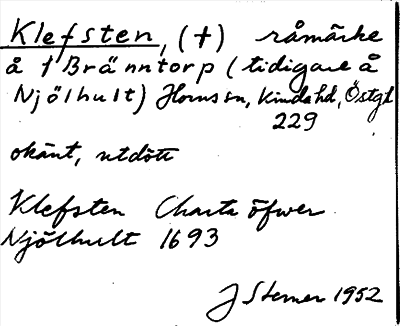 Klefsten, (†) råmärke
å † Bränntorp (tidigare å
Njölhult) Horns sn, Kinda hd, Östgl
229
okänt, utdött
Klefsten Charta öfwer
Njölhult 1693
J Sterner 1952